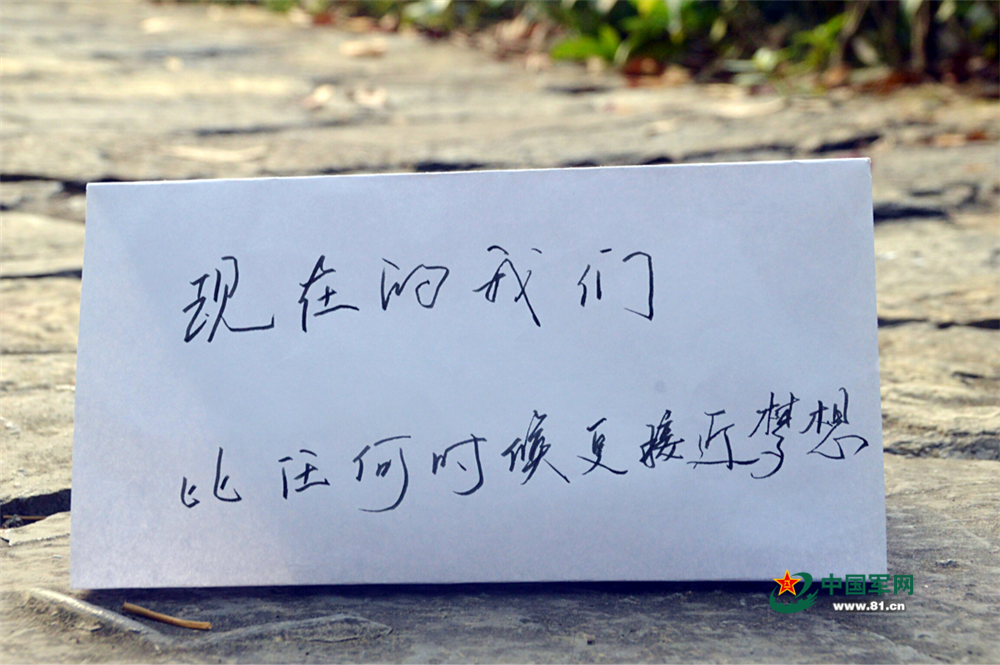 现在的我们
比任何时候更接近梦想
中国军网
www.81.cn